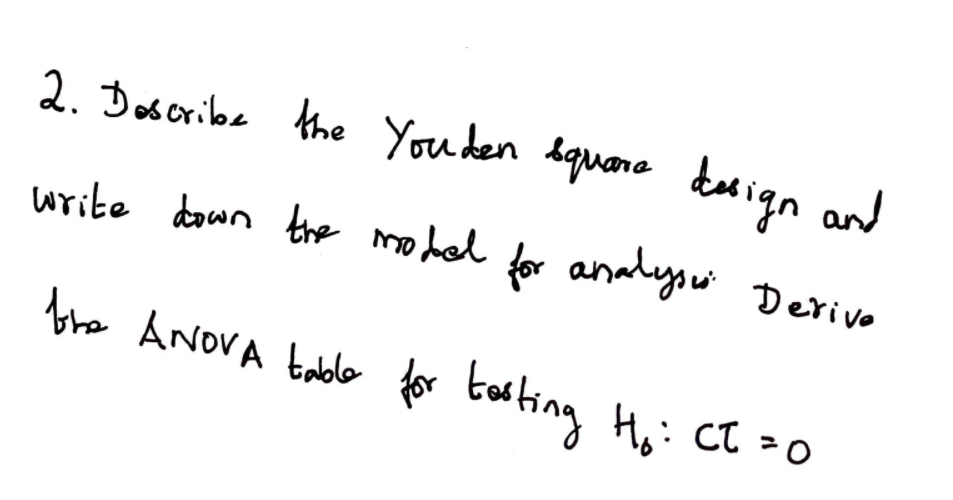 2. Describe the Youden square design and
write down the model for analysis. Derive
the ANOVA table for testing H₀: CτΤ = 0